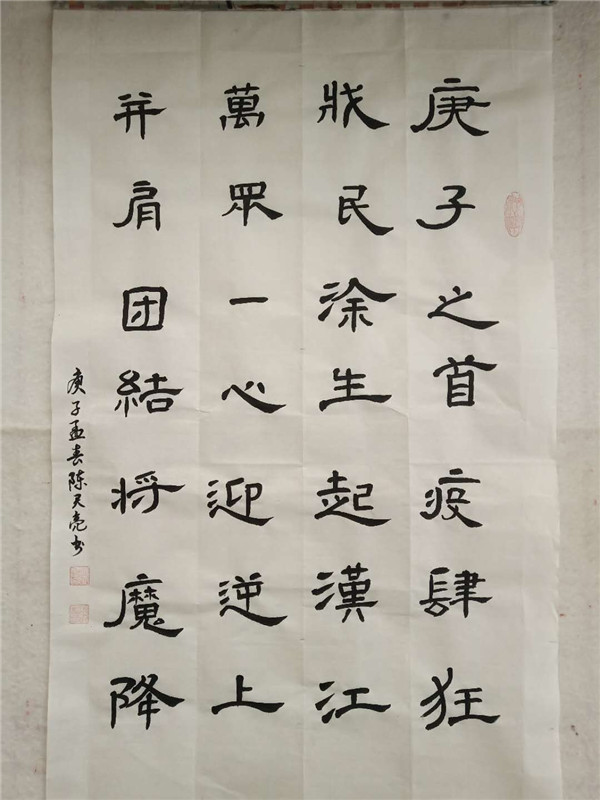 庚子之首疫肆狂
戕民涂生起漢江
萬眾一心迎逆上
并肩团結将魔降
庚子孟春陈天亮书